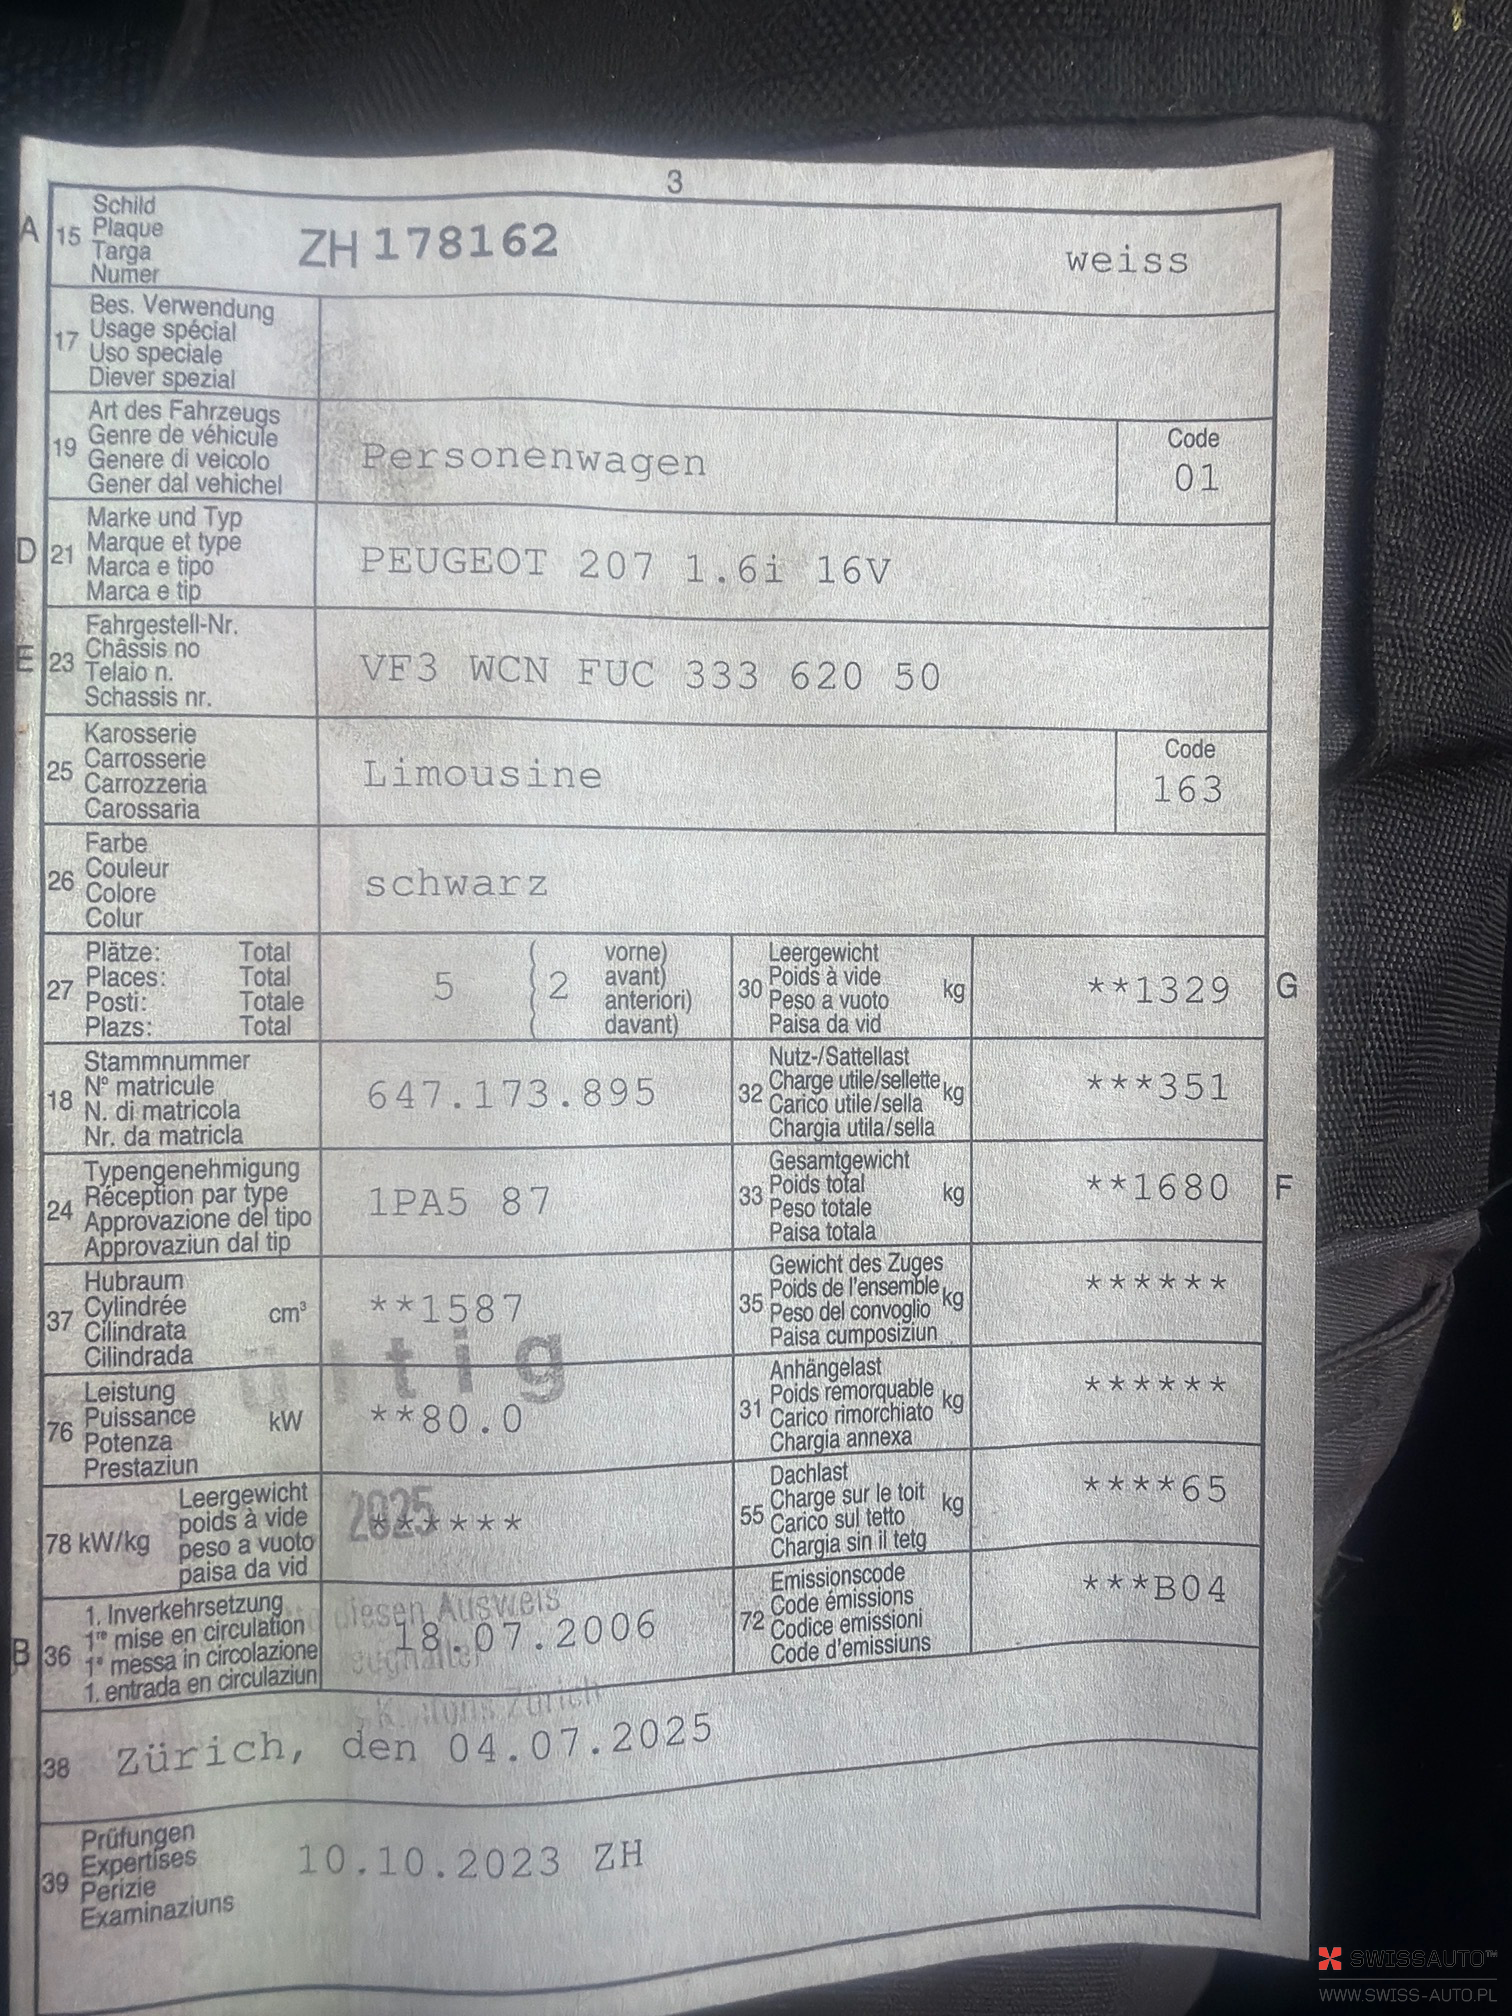 3
A
15
Schild
Plaque
Targa
Numer
ZH 178162
weiss
17
Bes. Verwendung
Usage spécial
Uso speciale
Diever spezial
19
Art des Fahrzeugs
Genre de véhicule
Genere di veicolo
Gener dal vehichel
Personenwagen
Code
01
D
21
Marke und Typ
Marque et type
Marca e tipo
Marca e tip
PEUGEOT 207 1.6i 16V
E
23
Fahrgestell-Nr.
Châssis no
Telaio n.
Schassis nr.
VF3 WCN FUC 333 620 50
25
Karosserie
Carrosserie
Carrozzeria
Carossaria
Limousine
Code
163
26
Farbe
Couleur
Colore
Colur
schwarz
27
Plätze: Total
Places: Total
Posti: Totale
Plazs: Total
5
( 2
vorne)
avant)
anteriori)
davant)
30
Leergewicht
Poids à vide
Peso a vuoto
Paisa da vid
kg
**1329
G
18
Stammnummer
N° matricule
N. di matricola
Nr. da matricla
647.173.895
32
Nutz-/Sattellast
Charge utile/sellette
Carico utile/sella
Chargia utila/sella
kg
***351
24
Typengenehmigung
Réception par type
Approvazione del tipo
Approvaziun dal tip
1PA5 87
33
Gesamtgewicht
Poids total
Peso totale
Paisa totala
kg
**1680
F
37
Hubraum
Cylindrée
Cilindrata
Cilindrada
cm³
**1587
35
Gewicht des Zuges
Poids de l'ensemble
Peso del convoglio
Paisa cumposiziun
kg
******
ültig
76
Leistung
Puissance
Potenza
Prestaziun
kW
**80.0
31
Anhängelast
Poids remorquable
Carico rimorchiato
Chargia annexa
kg
******
78 kW/kg
Leergewicht
poids à vide
peso a vuoto
paisa da vid
2025
******
55
Dachlast
Charge sur le toit
Carico sul tetto
Chargia sin il tetg
kg
****65
B
36
1. Inverkehrsetzung
1re mise en circulation
1a messa in circolazione
1. entrada en circulaziun
diesen Ausweis
18.07.2006
72
Emissionscode
Code émissions
Codice emissioni
Code d'emissiuns
***B04
Zürich
38
Zürich, den 04.07.2025
39
Prüfungen
Expertises
Perizie
Examinaziuns
10.10.2023 ZH
SWISSAUTO™
WWW.SWISS-AUTO.PL